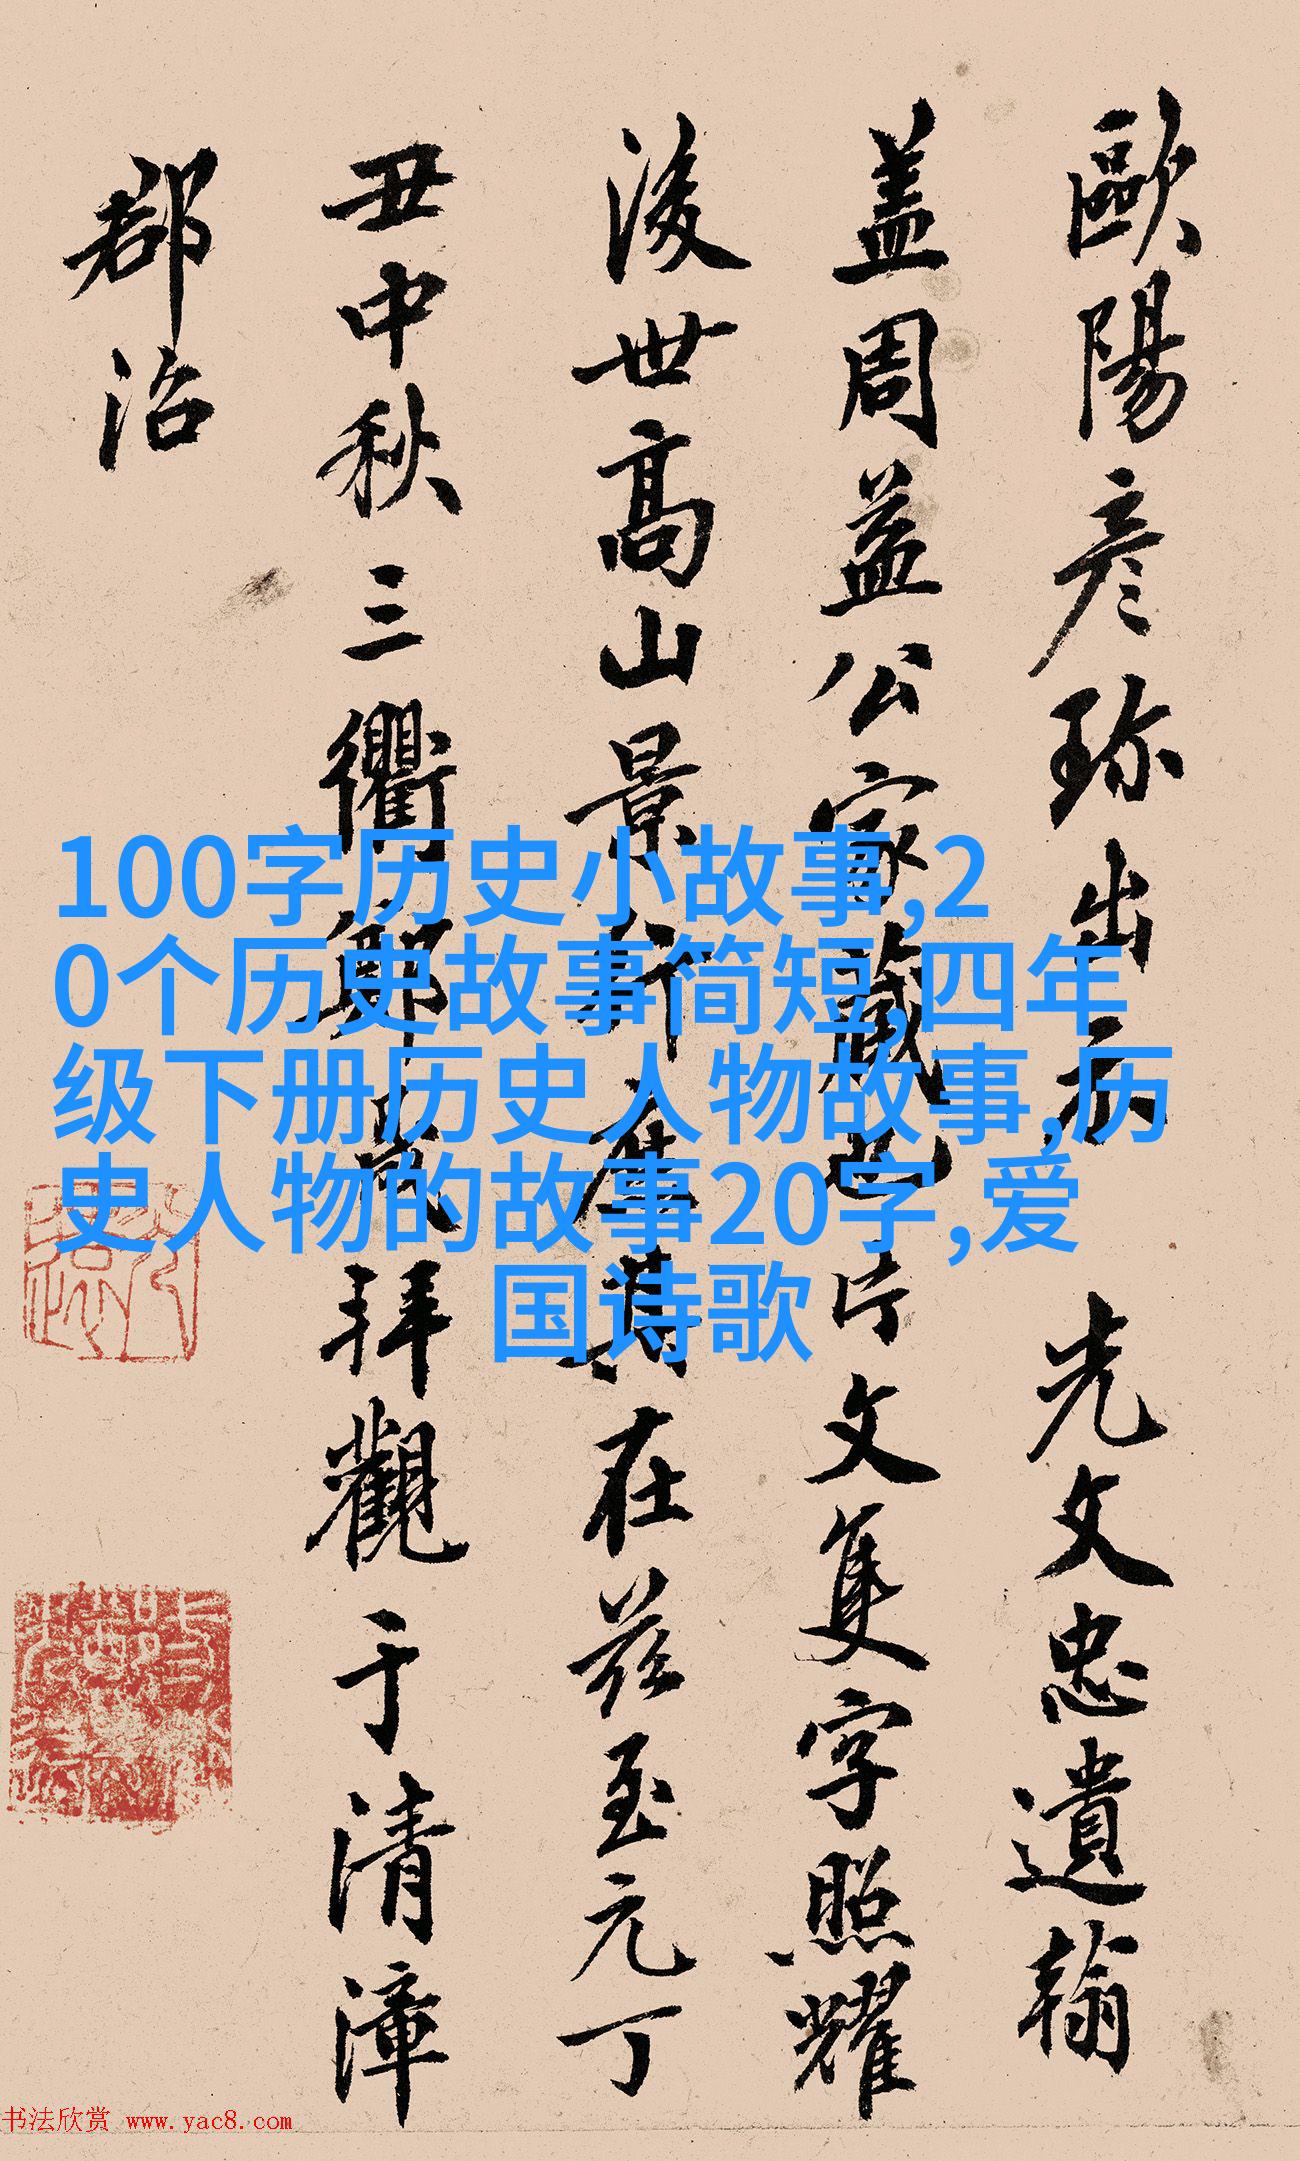 歐陽彦珎出示 先文忠遺翰
盖周益公家藏也片文隻字照耀
後世高山景行庶其在兹至元丁
丑中秋三衢鄭拜觀于清漳
郡治
100字历史小故事,2
0个历史故事简短,四年
级下册历史人物故事,历
史人物的故事20字,爱
国诗歌
书法欣赏 www.yac8.com